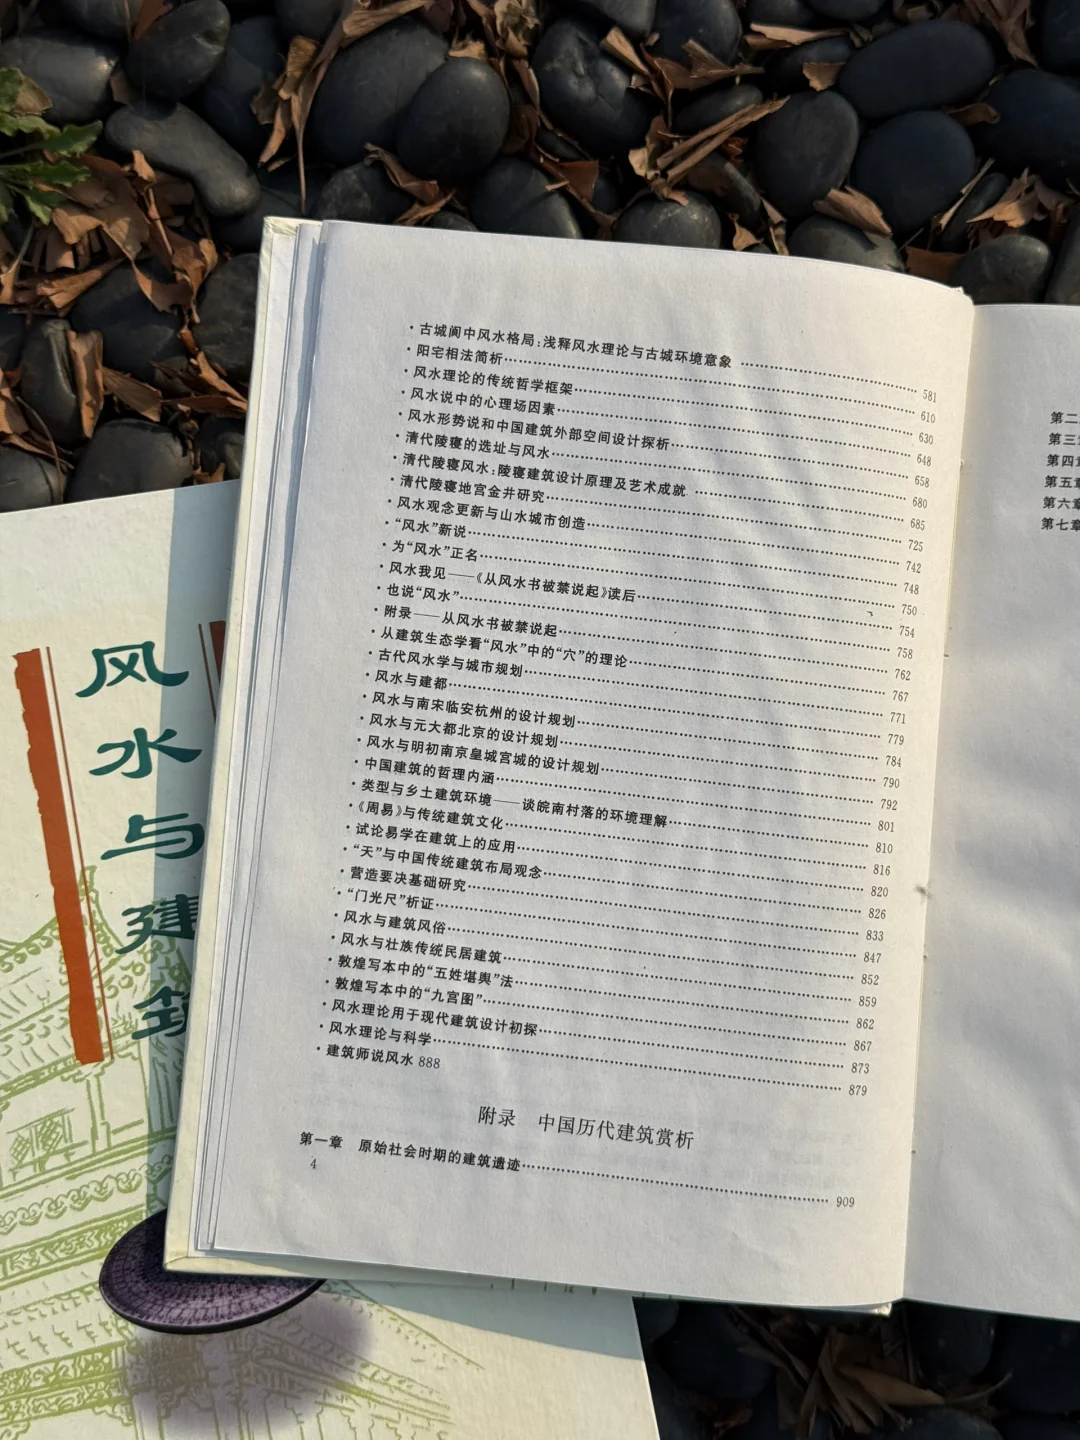 ·古城阆中风水格局:浅释风水理论与古城环境意象 …… 581
·阳宅相法简析…… 610
·风水理论的传统哲学框架…… 630
·风水说中的心理场因素…… 648
·风水形势说和中国建筑外部空间设计探析…… 658
·清代陵寝的选址与风水…… 680
·清代陵寝风水:陵寝建筑设计原理及艺术成就 …… 685
·清代陵寝地宫金井研究…… 725
·风水观念更新与山水城市创造…… 742
·“风水”新说…… 748
·为“风水”正名…… 750
·风水我见——《从风水书被禁说起》读后…… 754
·也说“风水”…… 758
·附录——从风水书被禁说起…… 762
·从建筑生态学看“风水”中的“穴”的理论…… 767
·古代风水学与城市规划…… 771
·风水与建都…… 779
·风水与南宋临安杭州的设计规划…… 784
·风水与元大都北京的设计规划…… 790
·风水与明初南京皇城宫城的设计规划…… 792
·中国建筑的哲理内涵…… 801
·类型与乡土建筑环境——谈皖南村落的环境理解…… 810
·《周易》与传统建筑文化…… 816
·试论易学在建筑上的应用…… 820
·“天”与中国传统建筑布局观念…… 826
·营造要决基础研究…… 833
·“门光尺”析证…… 847
·风水与建筑风俗…… 852
·风水与壮族传统民居建筑…… 859
·敦煌写本中的“五姓堪舆”法…… 862
·敦煌写本中的“九宫图”…… 867
·风水理论用于现代建筑设计初探…… 873
·风水理论与科学…… 879
·建筑师说风水 888
附录 中国历代建筑赏析
第一章 原始社会时期的建筑遗迹…… 909
4
第二
第三
第四章
第五章
第六章
第七章
风水与建筑